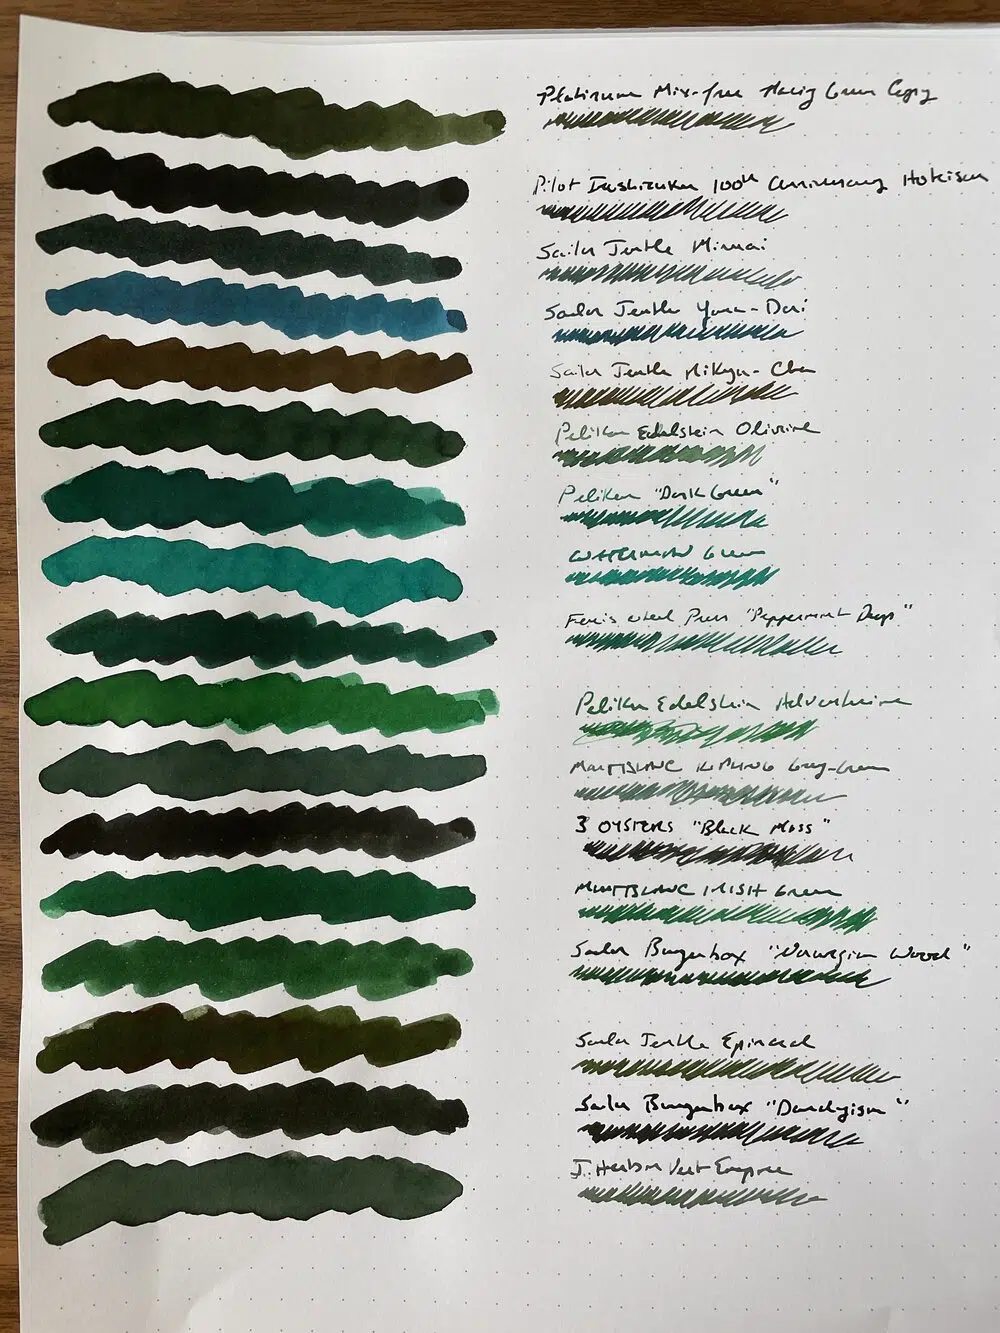 Platinum Mix-free Green Copy
Pilot Iroshizuku 100th Anniversary Hoteison
Sailor Jentle Miruai
Sailor Jentle Yama-Dori
Sailor Jentle Rikyu-Cha
Pelikan Edelstein Olivine
Pelikan "Dark Green"
WATERMAN Green
Ferris Wheel Press "Peppermint Drop"
Pelikan Edelstein Adventurine
MONTBLANC KIPLING Grey-Green
3 OYSTERS "Black Moss"
MONTBLANC IRISH Green
Sailor Bungubox "Norwegian Wood"
Sailor Jentle Epinard
Sailor Bungubox "Dandyism"
J. Herbin Vert Empire